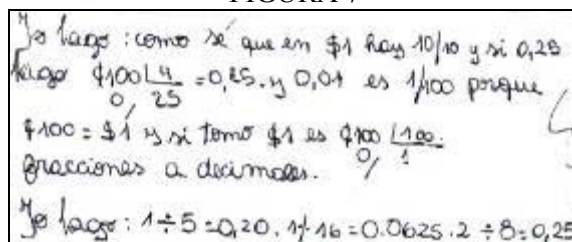 FIGURA 7
Yo hago: como sé que en $1 hay 10/10 y si 0,25
hago ¢100 | 4 = 0,25. y 0,01 es 1/100 porque
0/ 25
¢100 = $1 y si tomo $1 es ¢100 | 100.
0/ 1
fracciones a decimales.
Yo hago: 1÷5 = 0,20. 1÷16 = 0.0625. 2÷8 = 0,25